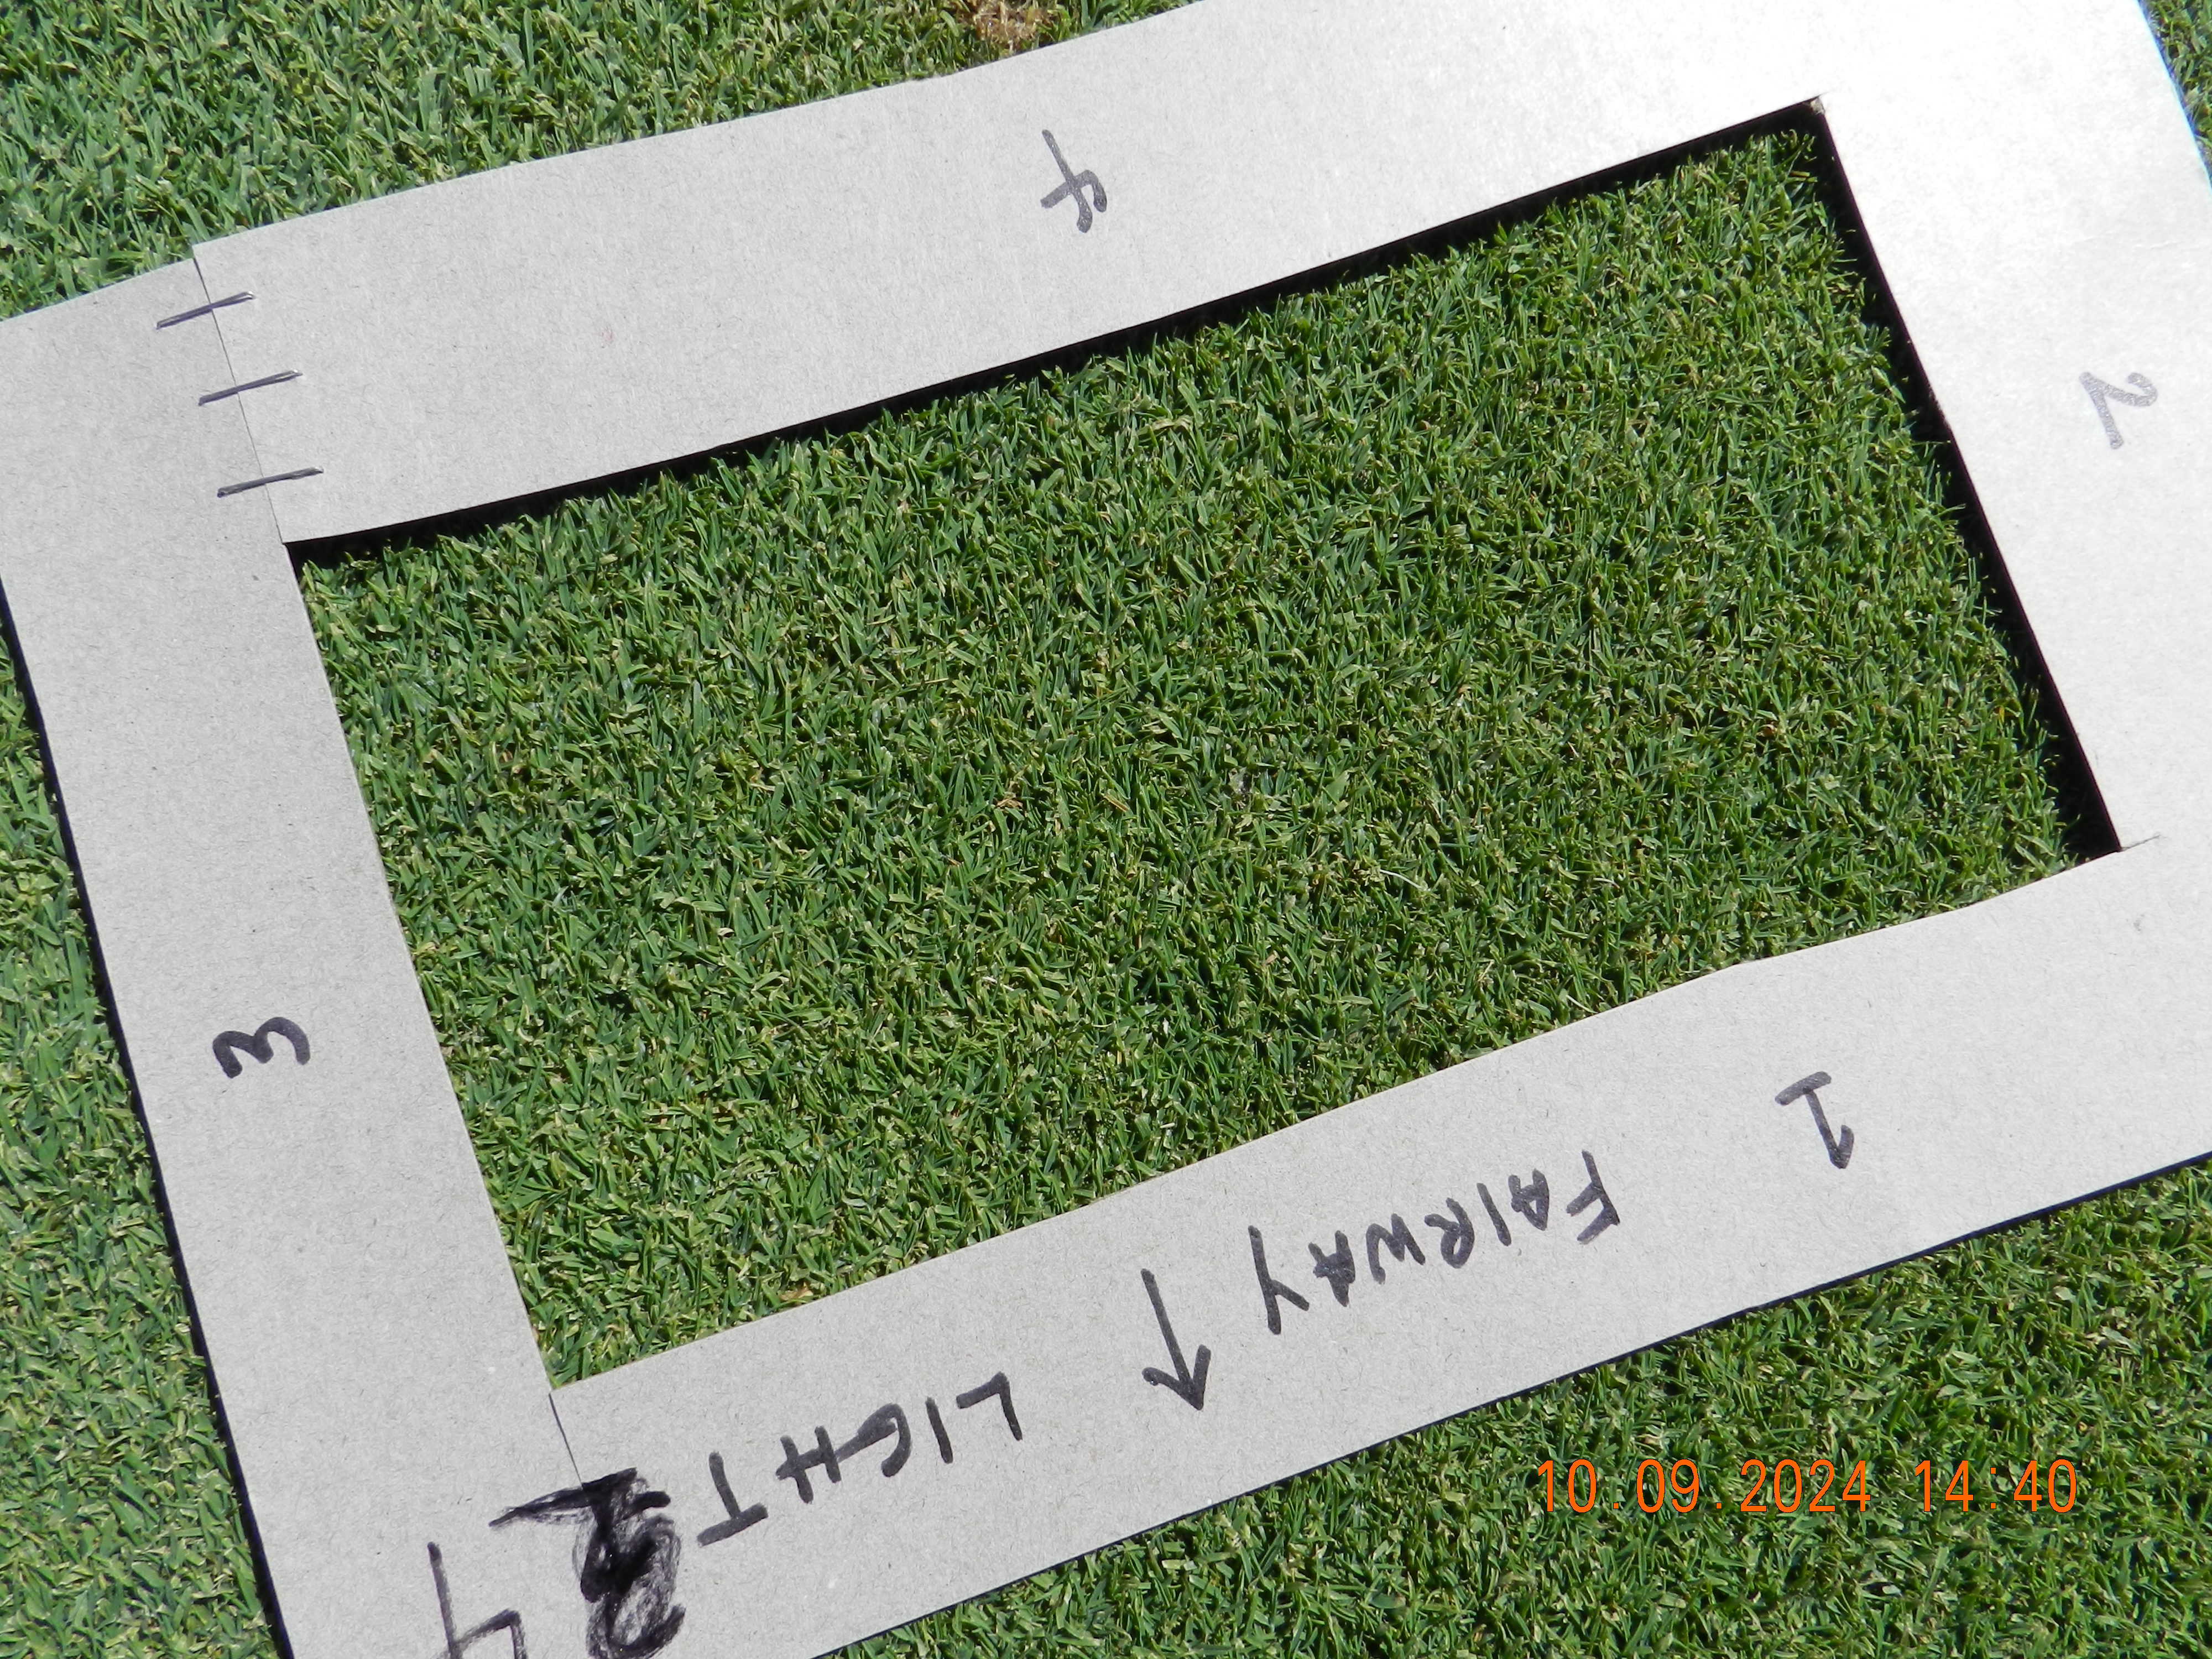 4
2
3
1
FAIRWAY → LIGHT
4
10.09.2024 14:40